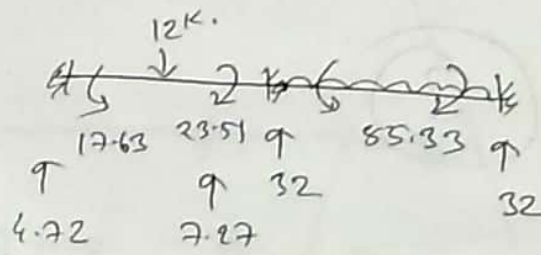 12K.
17.63 23.51 85.33
32 32
4.72 7.27